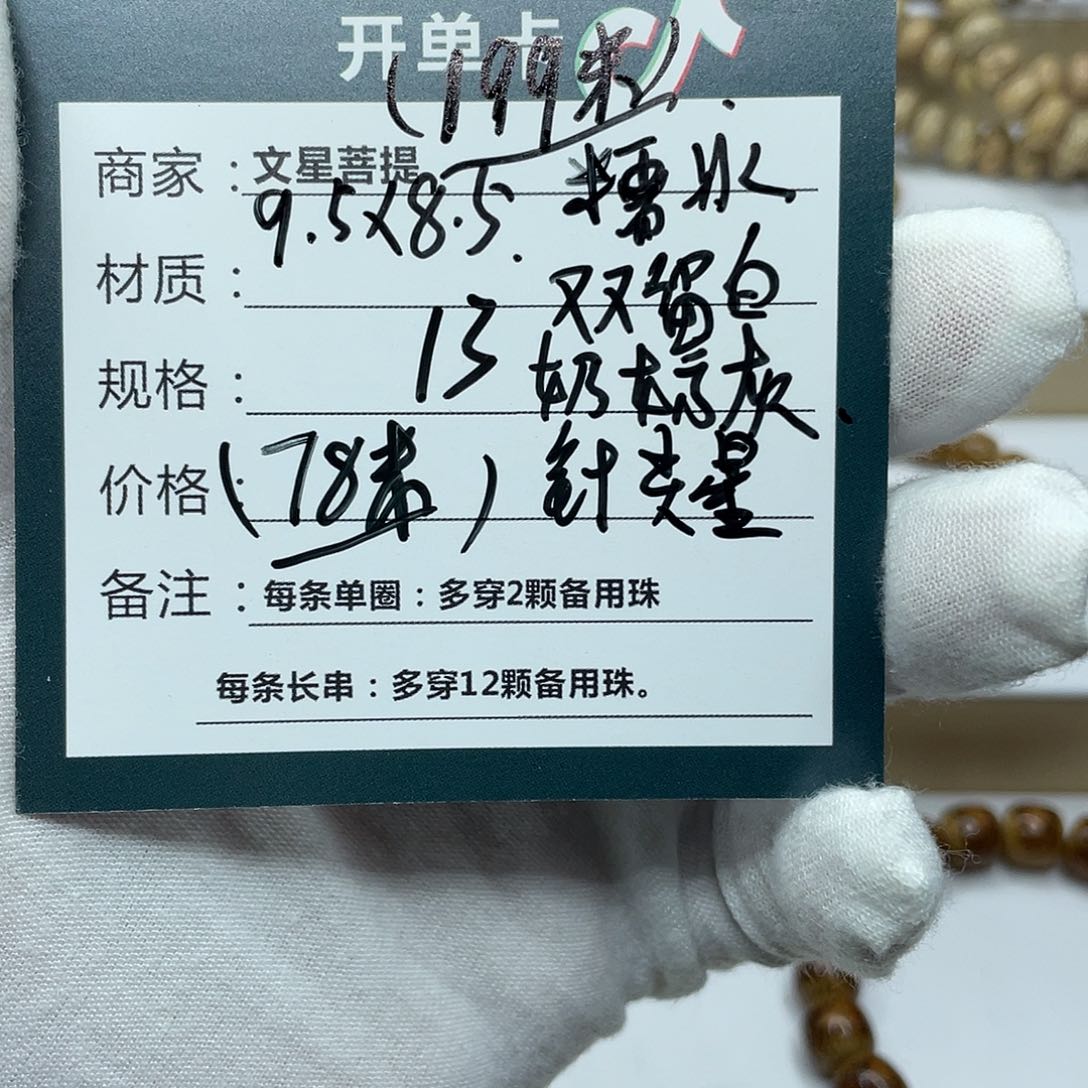 开单卡
(199米).
商家：文星菩提
9.5×8.5. 糯冰
材质：
双蛋白
规格：
13 奶棕灰.
价格：
(78米) 针美星
备注：每条单圈：多穿2颗备用珠
每条长串：多穿12颗备用珠。